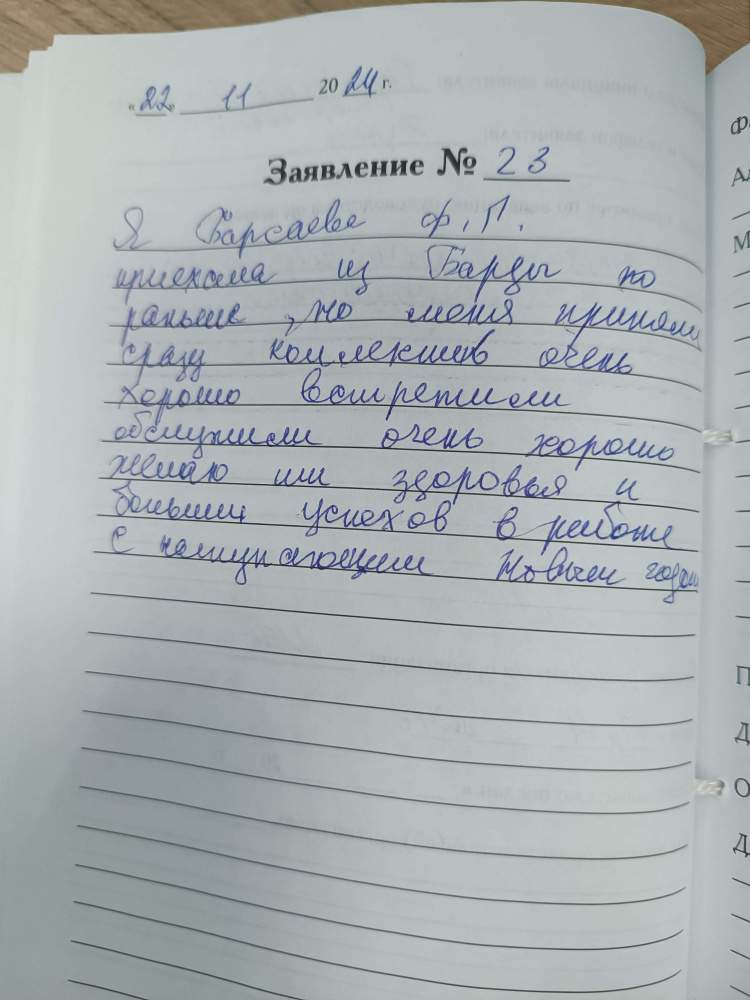 «22» 11 2024 г.
Заявление № 23
Я Барсаева Ф. П.
приехала из Барды по
раньше, но меня приняли
сразу коллектив очень
хорошо встретили
обслужили очень хорошо
желаю им здоровья и
больших успехов в работе
с наступающим Новым годом